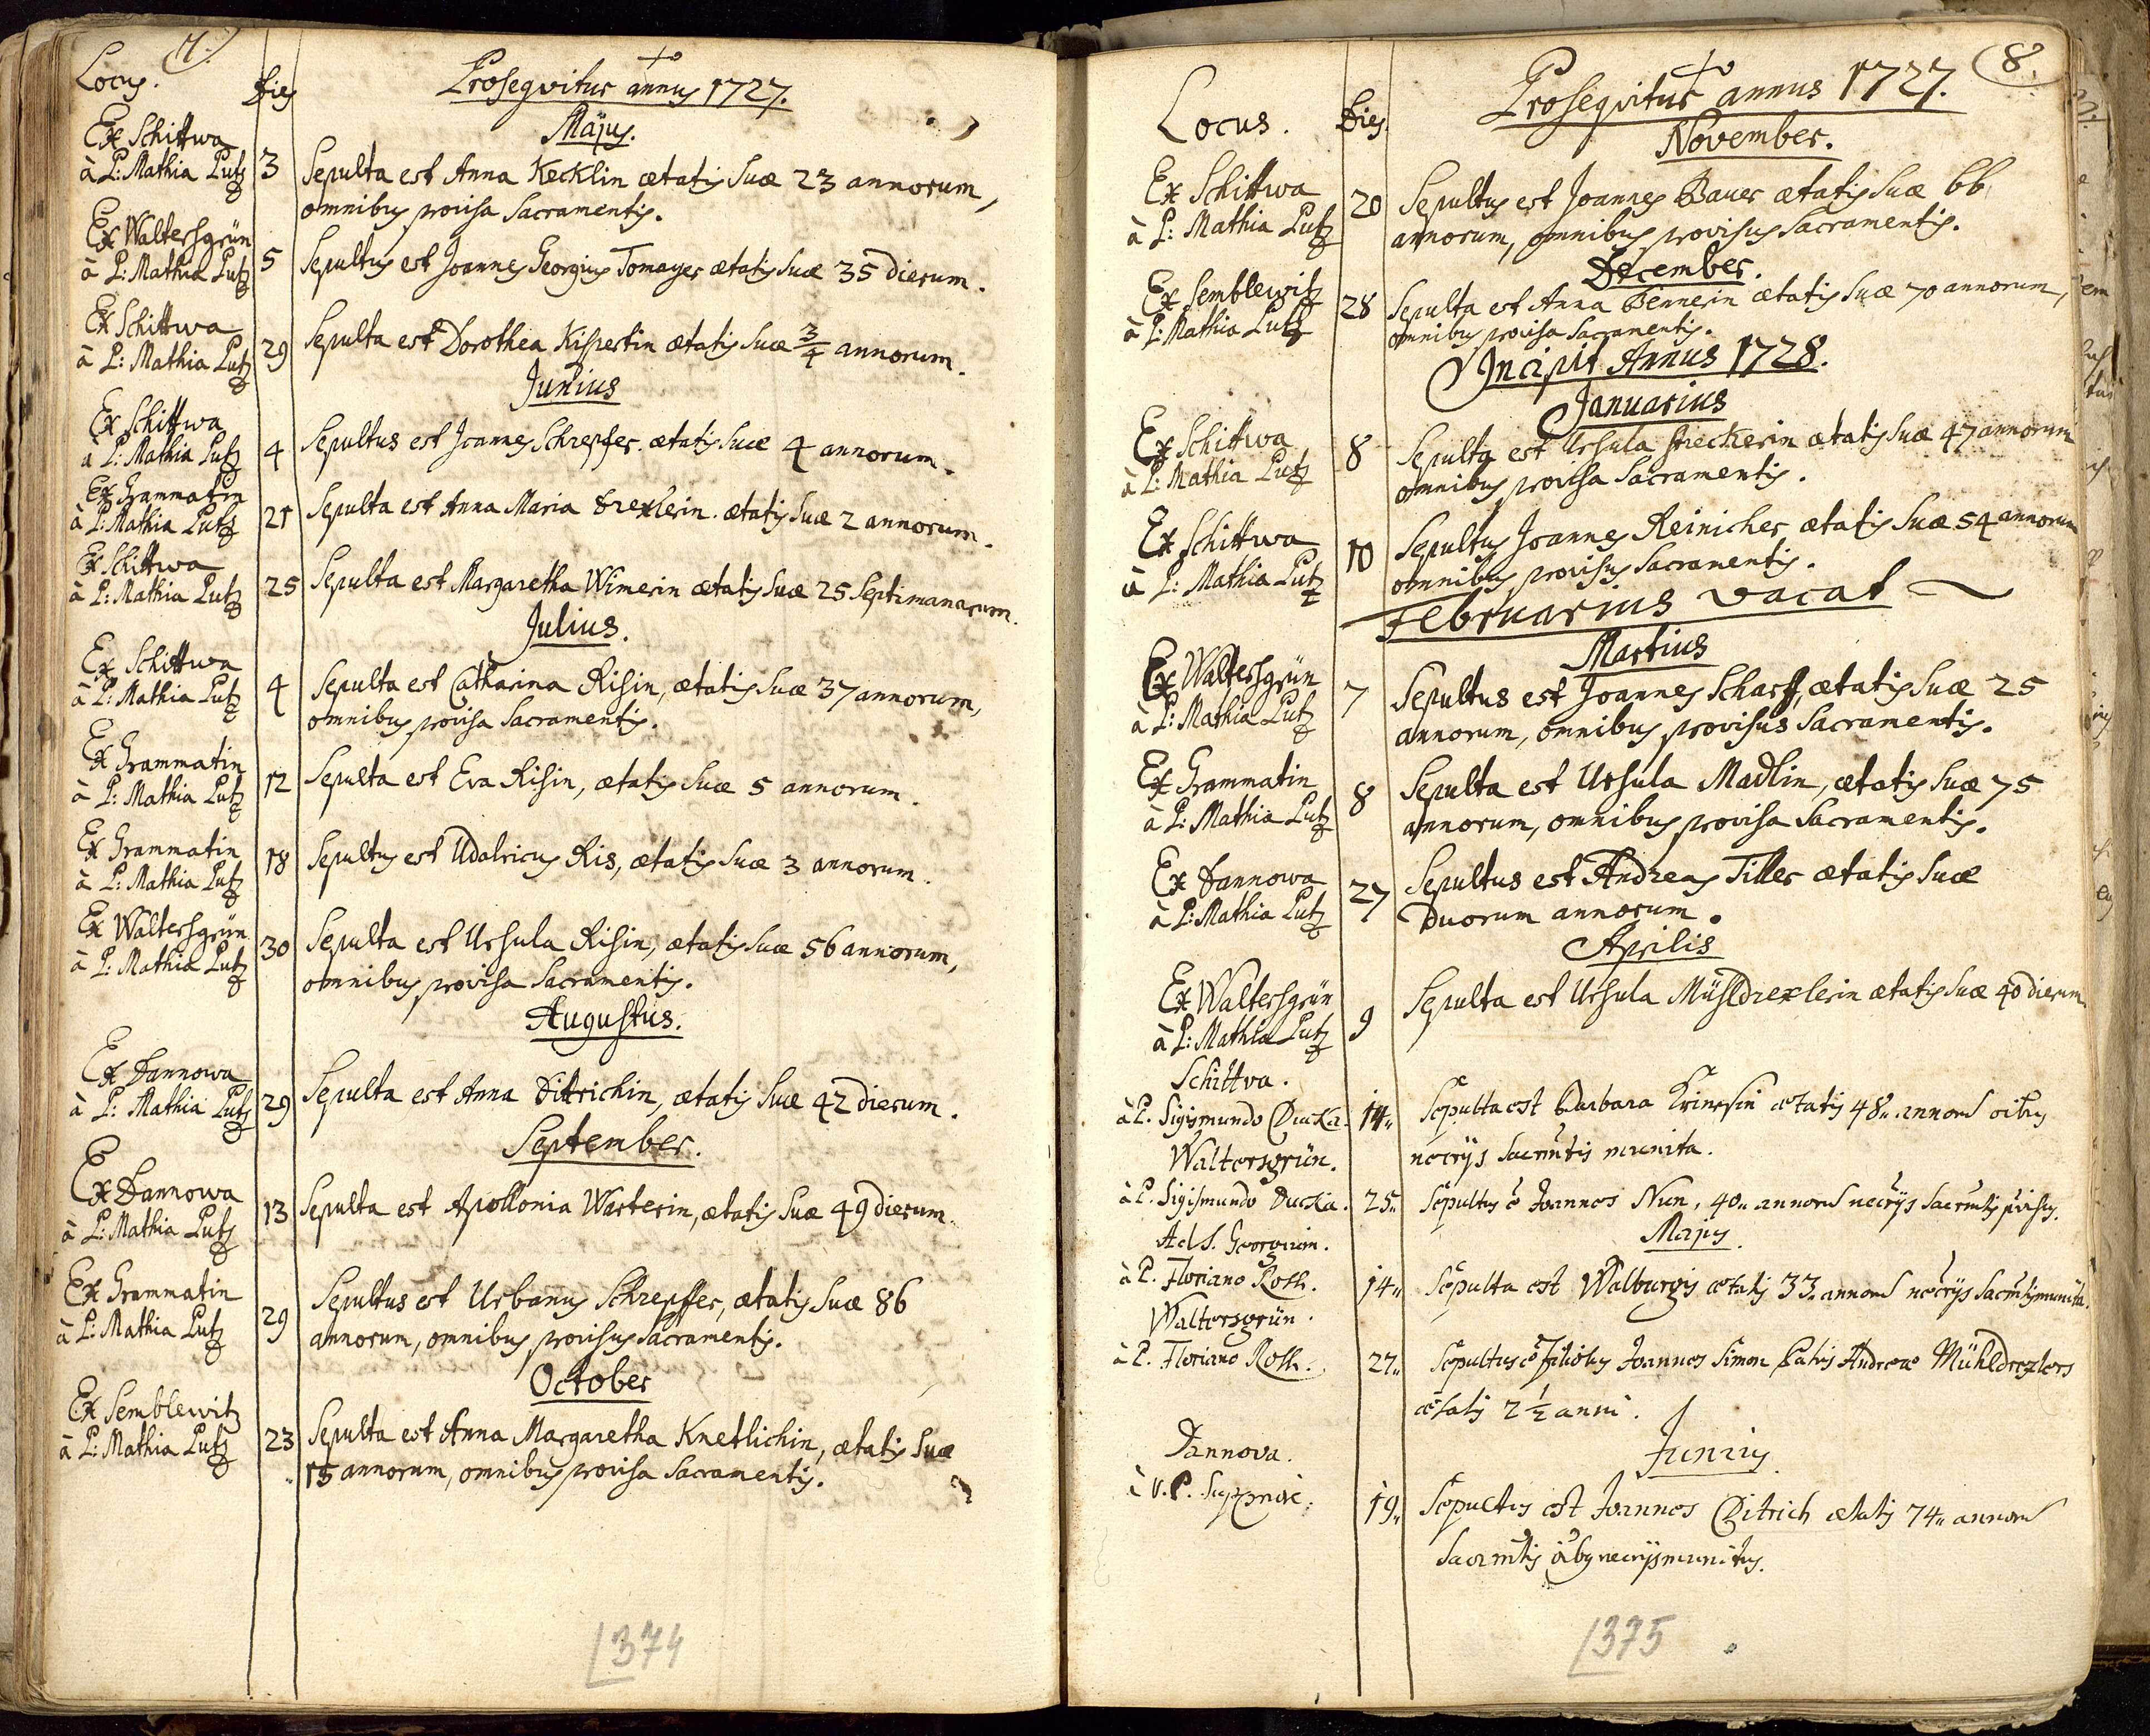 7.
Locus. Dies Prosequitur annus 1727.
Majus.
Ex Schittwa
à P: Mathia Lutz 3 Sepulta est Anna Kecklin ætatis suæ 23 annorum,
omnibus provisa Sacramentis.
Ex Waltersgrün
à P: Mathia Lutz 5 Sepultus est Joannes Georgius Tomayer ætatis suæ 35 dierum.
Ex Schittwa
à P: Mathia Lutz 29 Sepulta est Dorothea Kispertin ætatis suæ 3/4 annorum.
Junius
Ex Schittwa
à P: Mathia Lutz 4 Sepultus est Joannes Schrepfer ætatis suæ 4 annorum.
Ex Grammatin
à P: Mathia Lutz 21 Sepulta est Anna Maria Drexlerin ætatis suæ 2 annorum.
Ex Schittwa
à P: Mathia Lutz 25 Sepulta est Margaretha Wimerin ætatis suæ 25 Septimanarum.
Julius.
Ex Schittwa
à P: Mathia Lutz 4 Sepulta est Catharina Risin, ætatis suæ 37 annorum,
omnibus provisa Sacramentis.
Ex Grammatin
à P: Mathia Lutz 12 Sepulta est Eva Risin, ætatis suæ 5 annorum.
Ex Grammatin
à P: Mathia Lutz 18 Sepultus est Udalricus Ris, ætatis suæ 3 annorum.
Ex Waltersgrün
à P: Mathia Lutz 30 Sepulta est Ursula Risin, ætatis suæ 56 annorum,
omnibus provisa Sacramentis.
Augustus.
Ex Dannowa
à P: Mathia Lutz 29 Sepulta est Anna Dittrichin, ætatis suæ 42 dierum.
September.
Ex Dannowa
à P: Mathia Lutz 13 Sepulta est Apollonia Warterin, ætatis suæ 49 dierum.
Ex Grammatin
à P: Mathia Lutz 29 Sepultus est Urbanus Schrepffer, ætatis suæ 86
annorum, omnibus provisus sacramentis.
October
Ex Semblewitz
à P: Mathia Lutz 23 Sepulta est Anna Margaretha Knetlichin, ætatis suæ
15 annorum, omnibus provisa Sacramentis.
374
8.
Locus. Dies. Prosequitur annus 1727.
November.
Ex Schittwa
à P: Mathia Lutz 20 Sepultus est Joannes Bauer ætatis suæ 66
annorum, omnibus provisus Sacramentis.
December.
Ex Semblewitz
à P: Mathia Lutz 28 Sepulta est Anna Bennerin ætatis suæ 70 annorum,
omnibus provisa Sacramentis.
Incipit Annus 1728.
Januarius
Ex Schittwa
à P: Mathia Lutz 8 Sepulta est Ursula Streckerin ætatis suæ 47 annorum
omnibus provisa Sacramentis.
Ex Schittwa
à P: Mathia Lutz 10 Sepultus Joannes Reinicher ætatis suæ 54 annorum
omnibus provisus Sacramentis.
Februarius vacat
Martius
Ex Waltersgrün
à P: Mathia Lutz 7 Sepultus est Joannes Scharff, ætatis suæ 25
annorum, omnibus provisus Sacramentis.
Ex Grammatin
à P: Mathia Lutz 8 Sepulta est Ursula Madlin, ætatis suæ 75
annorum, omnibus provisa Sacramentis.
Ex Dannowa
à P: Mathia Lutz 27 Sepultus est Andreas Tiller ætatis suæ
Duorum annorum.
Aprilis
Ex Waltersgrün
à P: Mathia Lutz 9 Sepulta est Ursula Mühldrexlerin ætatis suæ 40 dierum
Schittva.
à P. Sigismundo Ducka. 14. Sepulta est Barbara ætatis 48. annorū oibus
necrijs sacrmtis munita.
Waltersgrün.
à P. Sigismundo Ducka. 25. Sepultus ē Joannes Nun, 40. annorū necrijs sacrmtis
Majus
Ad S. Georgium.
à P. Floriano Roth. 14. Sepulta est Walburgis ætatis 33. annorū necrijs sacrmtis munita.
Waltersgrün.
à P. Floriano Roth. 27. Sepultus ē filiolus Joannes Simon Patris Andreae Mühldrexlers
ætatis 2 1/2 anni.
Junius
Dannova.
à V. P. 19. Sepultus est Joannes Ditrich ætatis 74. annorū
sacrmtis oibus necrijs munitus.
375